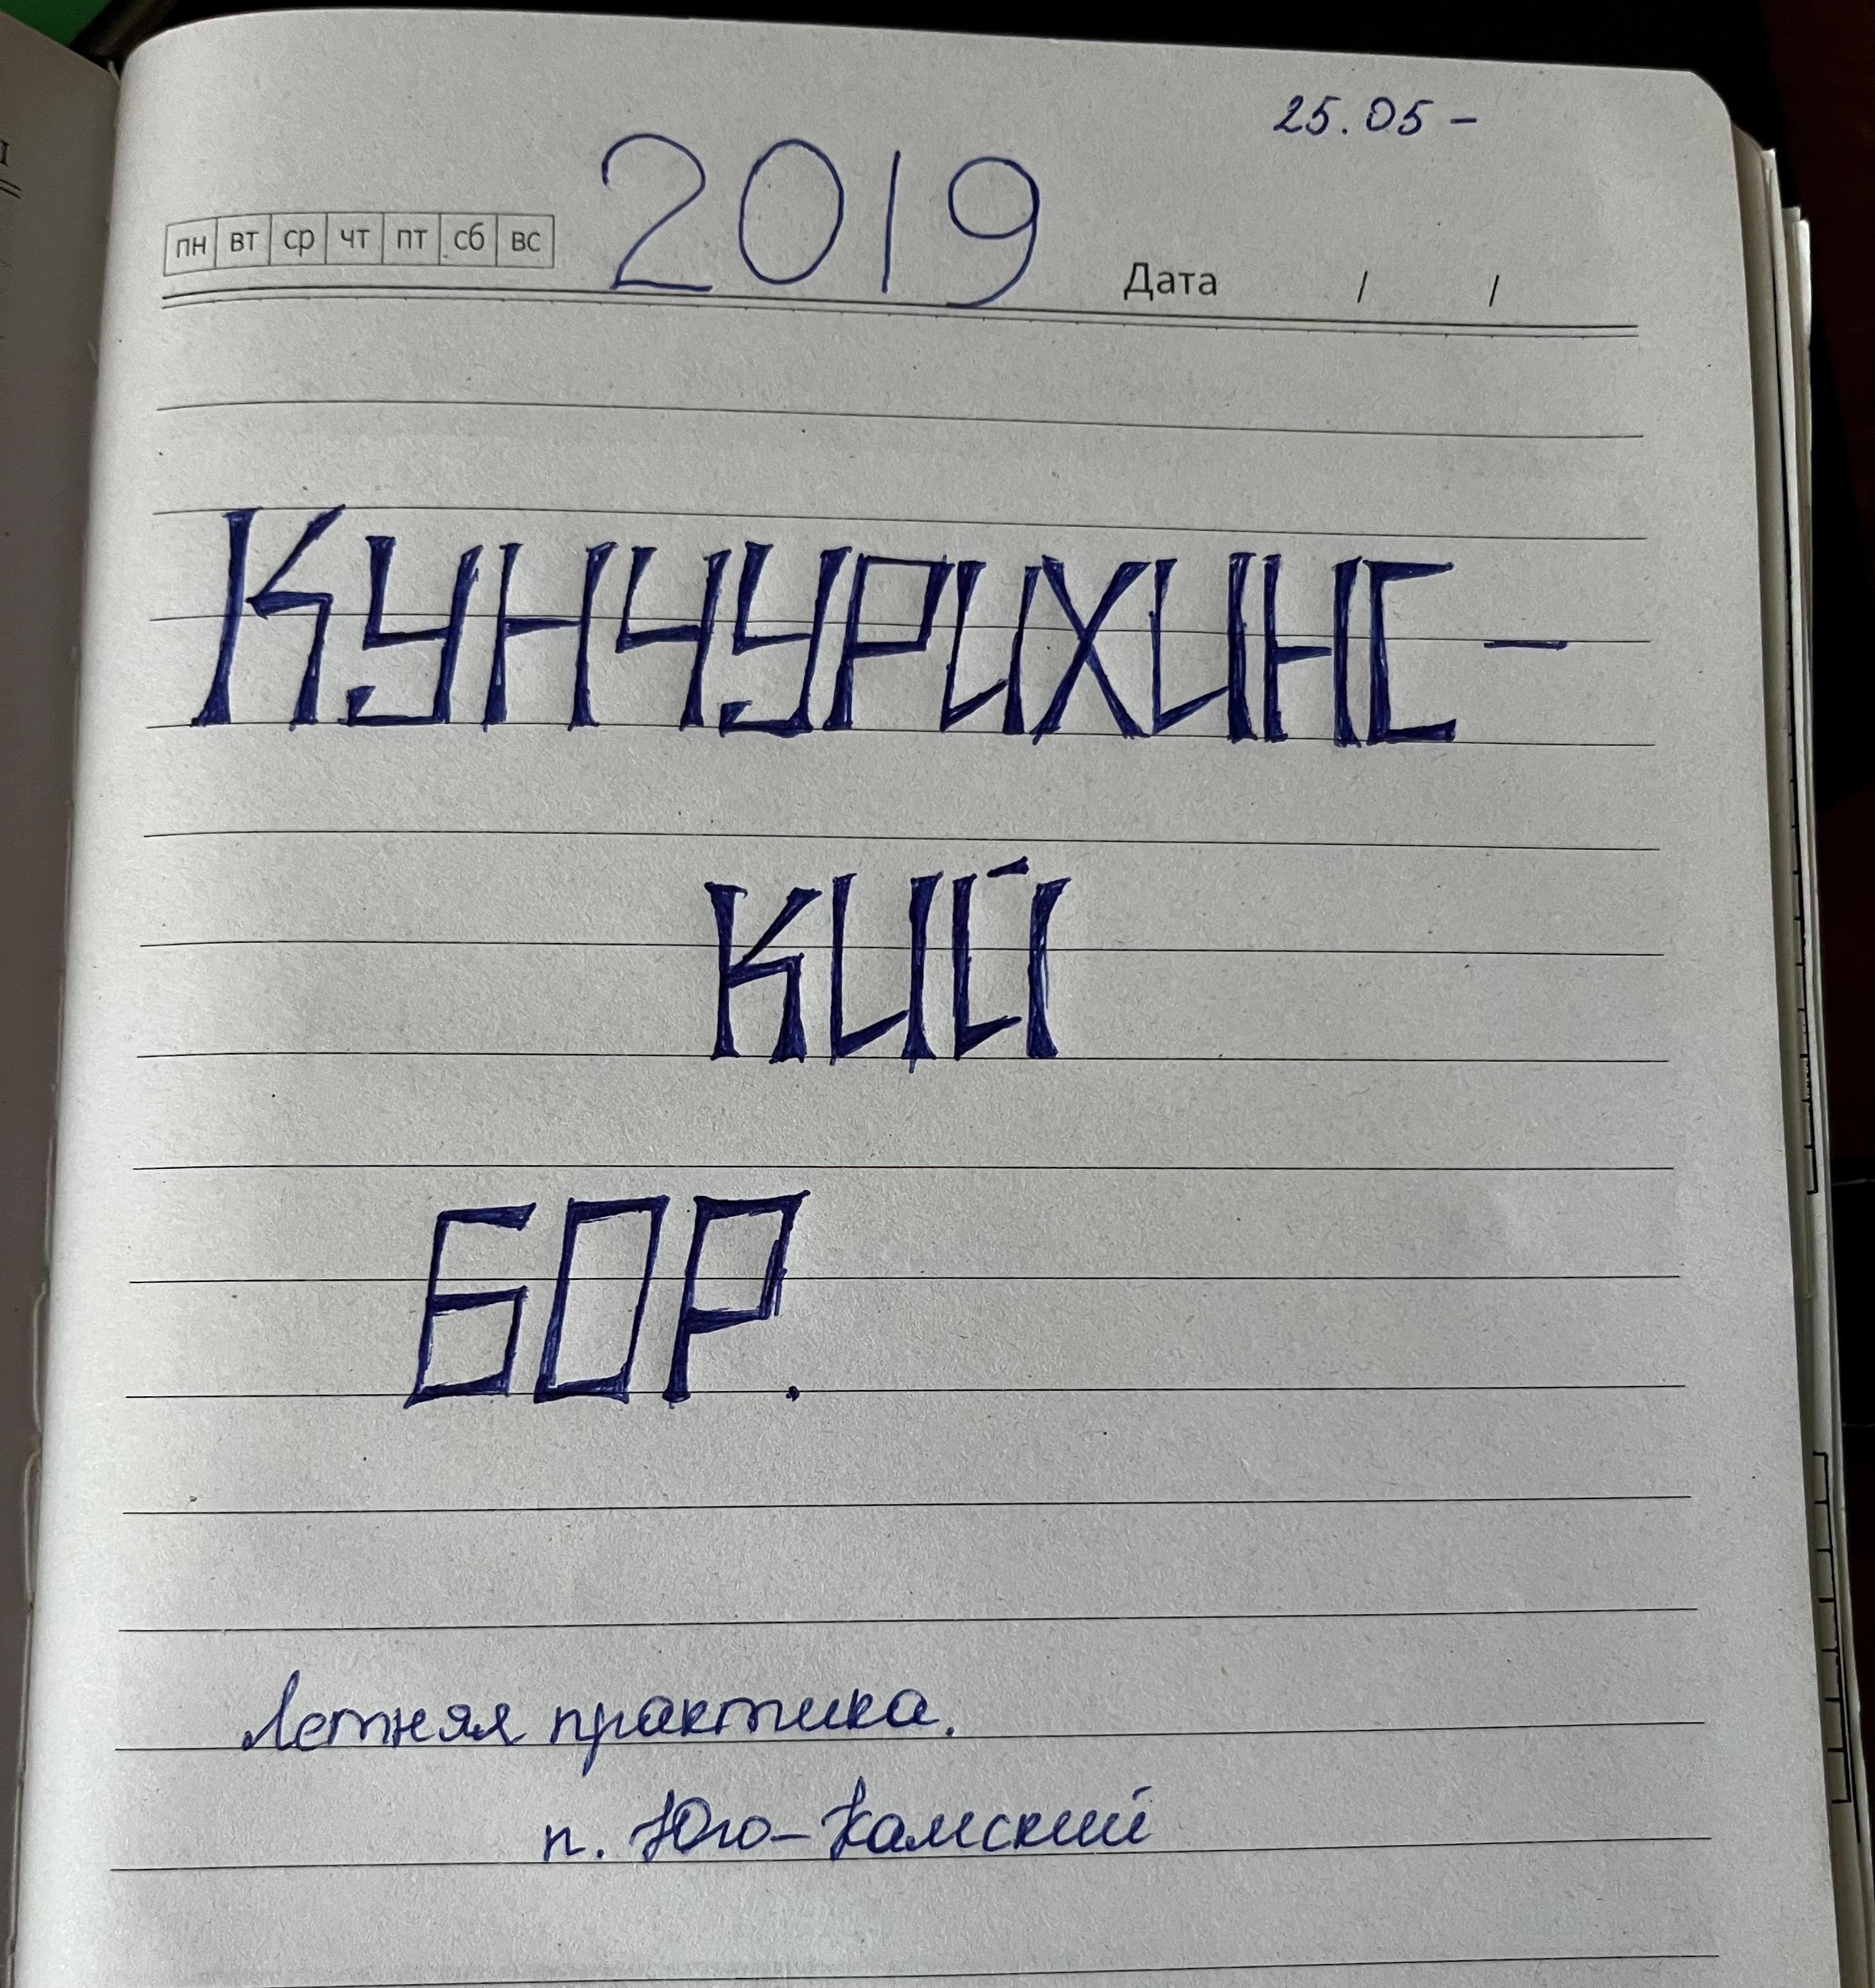 25.05 -
2019
пн вт ср чт пт сб вс
Дата / /
КУНЧУРИХИНС-
КИЙ
БОР.
Летняя практика.
п. Юго-Камский